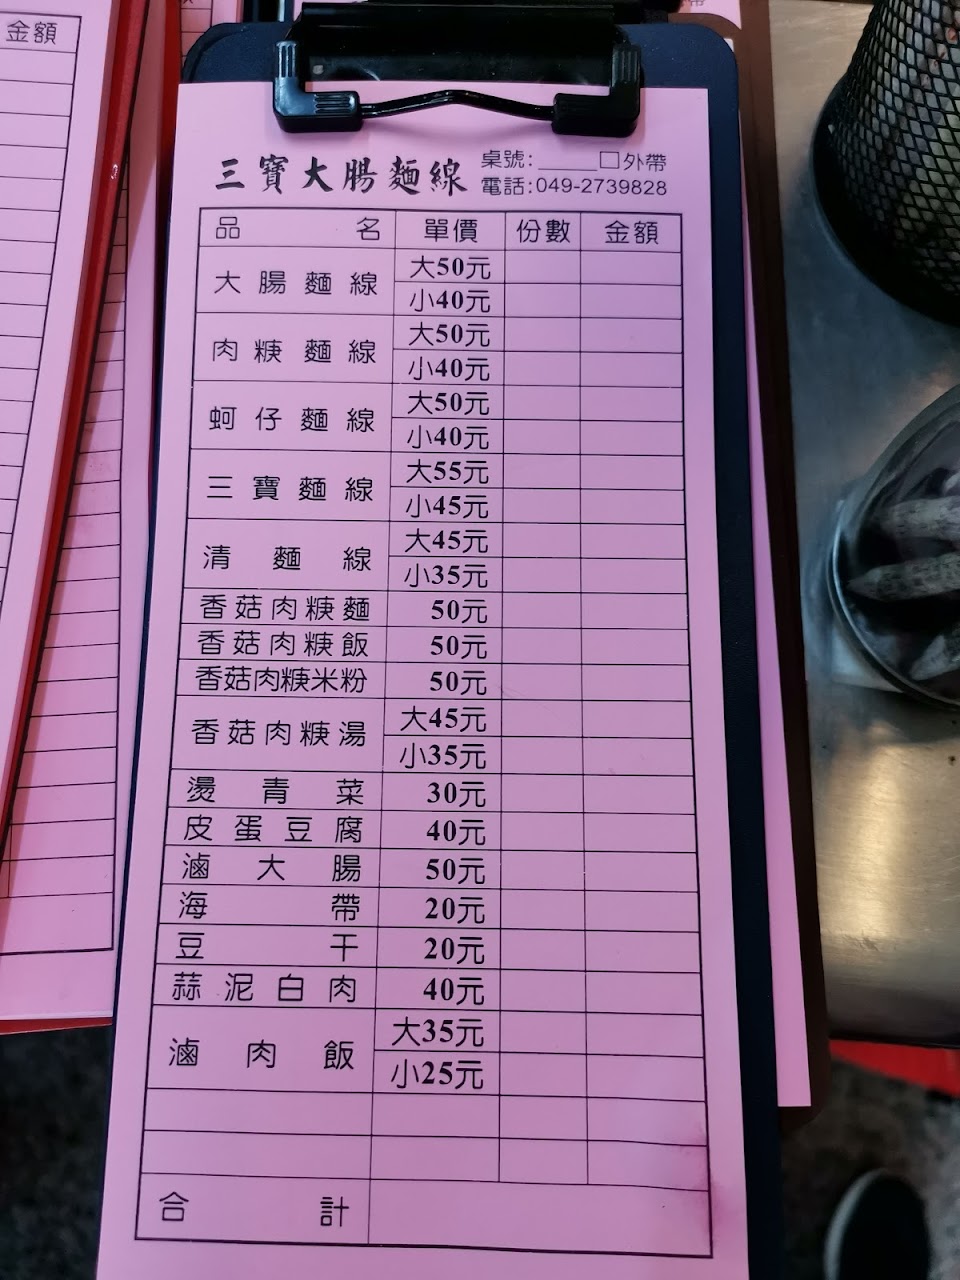 金額
三寶大腸麵線
桌號:_____□外帶
電話:049-2739828
品名 單價 份數 金額
大腸麵線 大50元
小40元
肉焿麵線 大50元
小40元
蚵仔麵線 大50元
小40元
三寶麵線 大55元
小45元
清麵線 大45元
小35元
香菇肉焿麵 50元
香菇肉焿飯 50元
香菇肉焿米粉 50元
香菇肉焿湯 大45元
小35元
燙青菜 30元
皮蛋豆腐 40元
滷大腸 50元
海帶 20元
豆干 20元
蒜泥白肉 40元
滷肉飯 大35元
小25元
合計